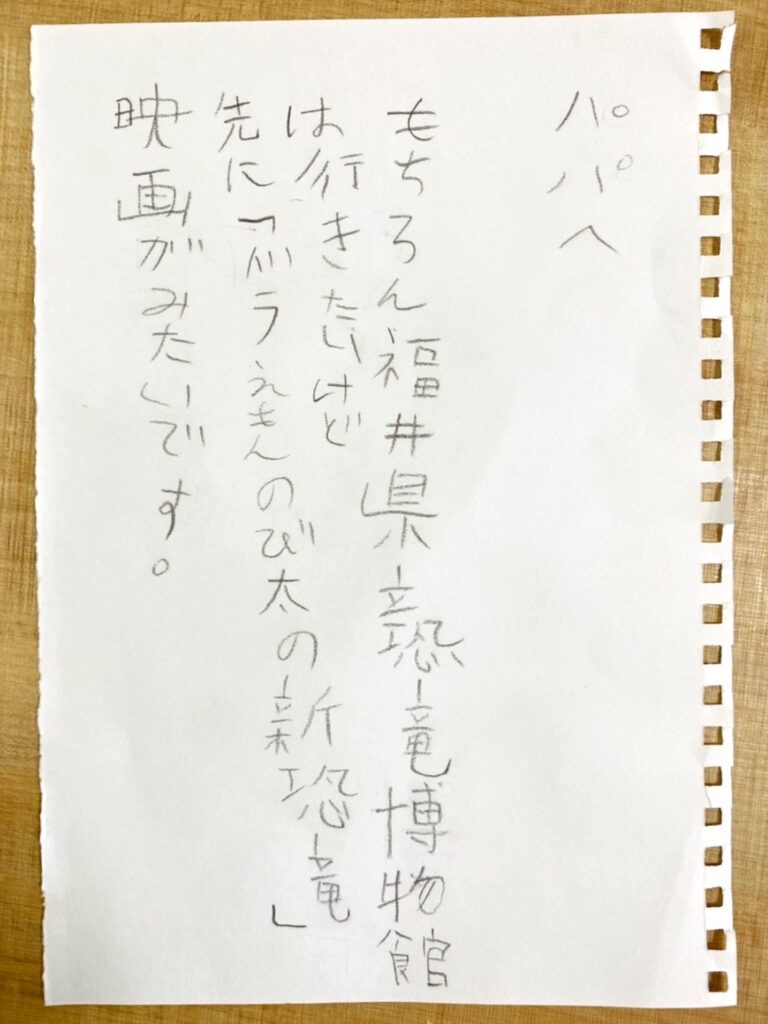 パパへ
もちろん福井県立恐竜博物館
は行きたいけど
先に「ドラえもんのび太の新恐竜」
映画がみたいです。